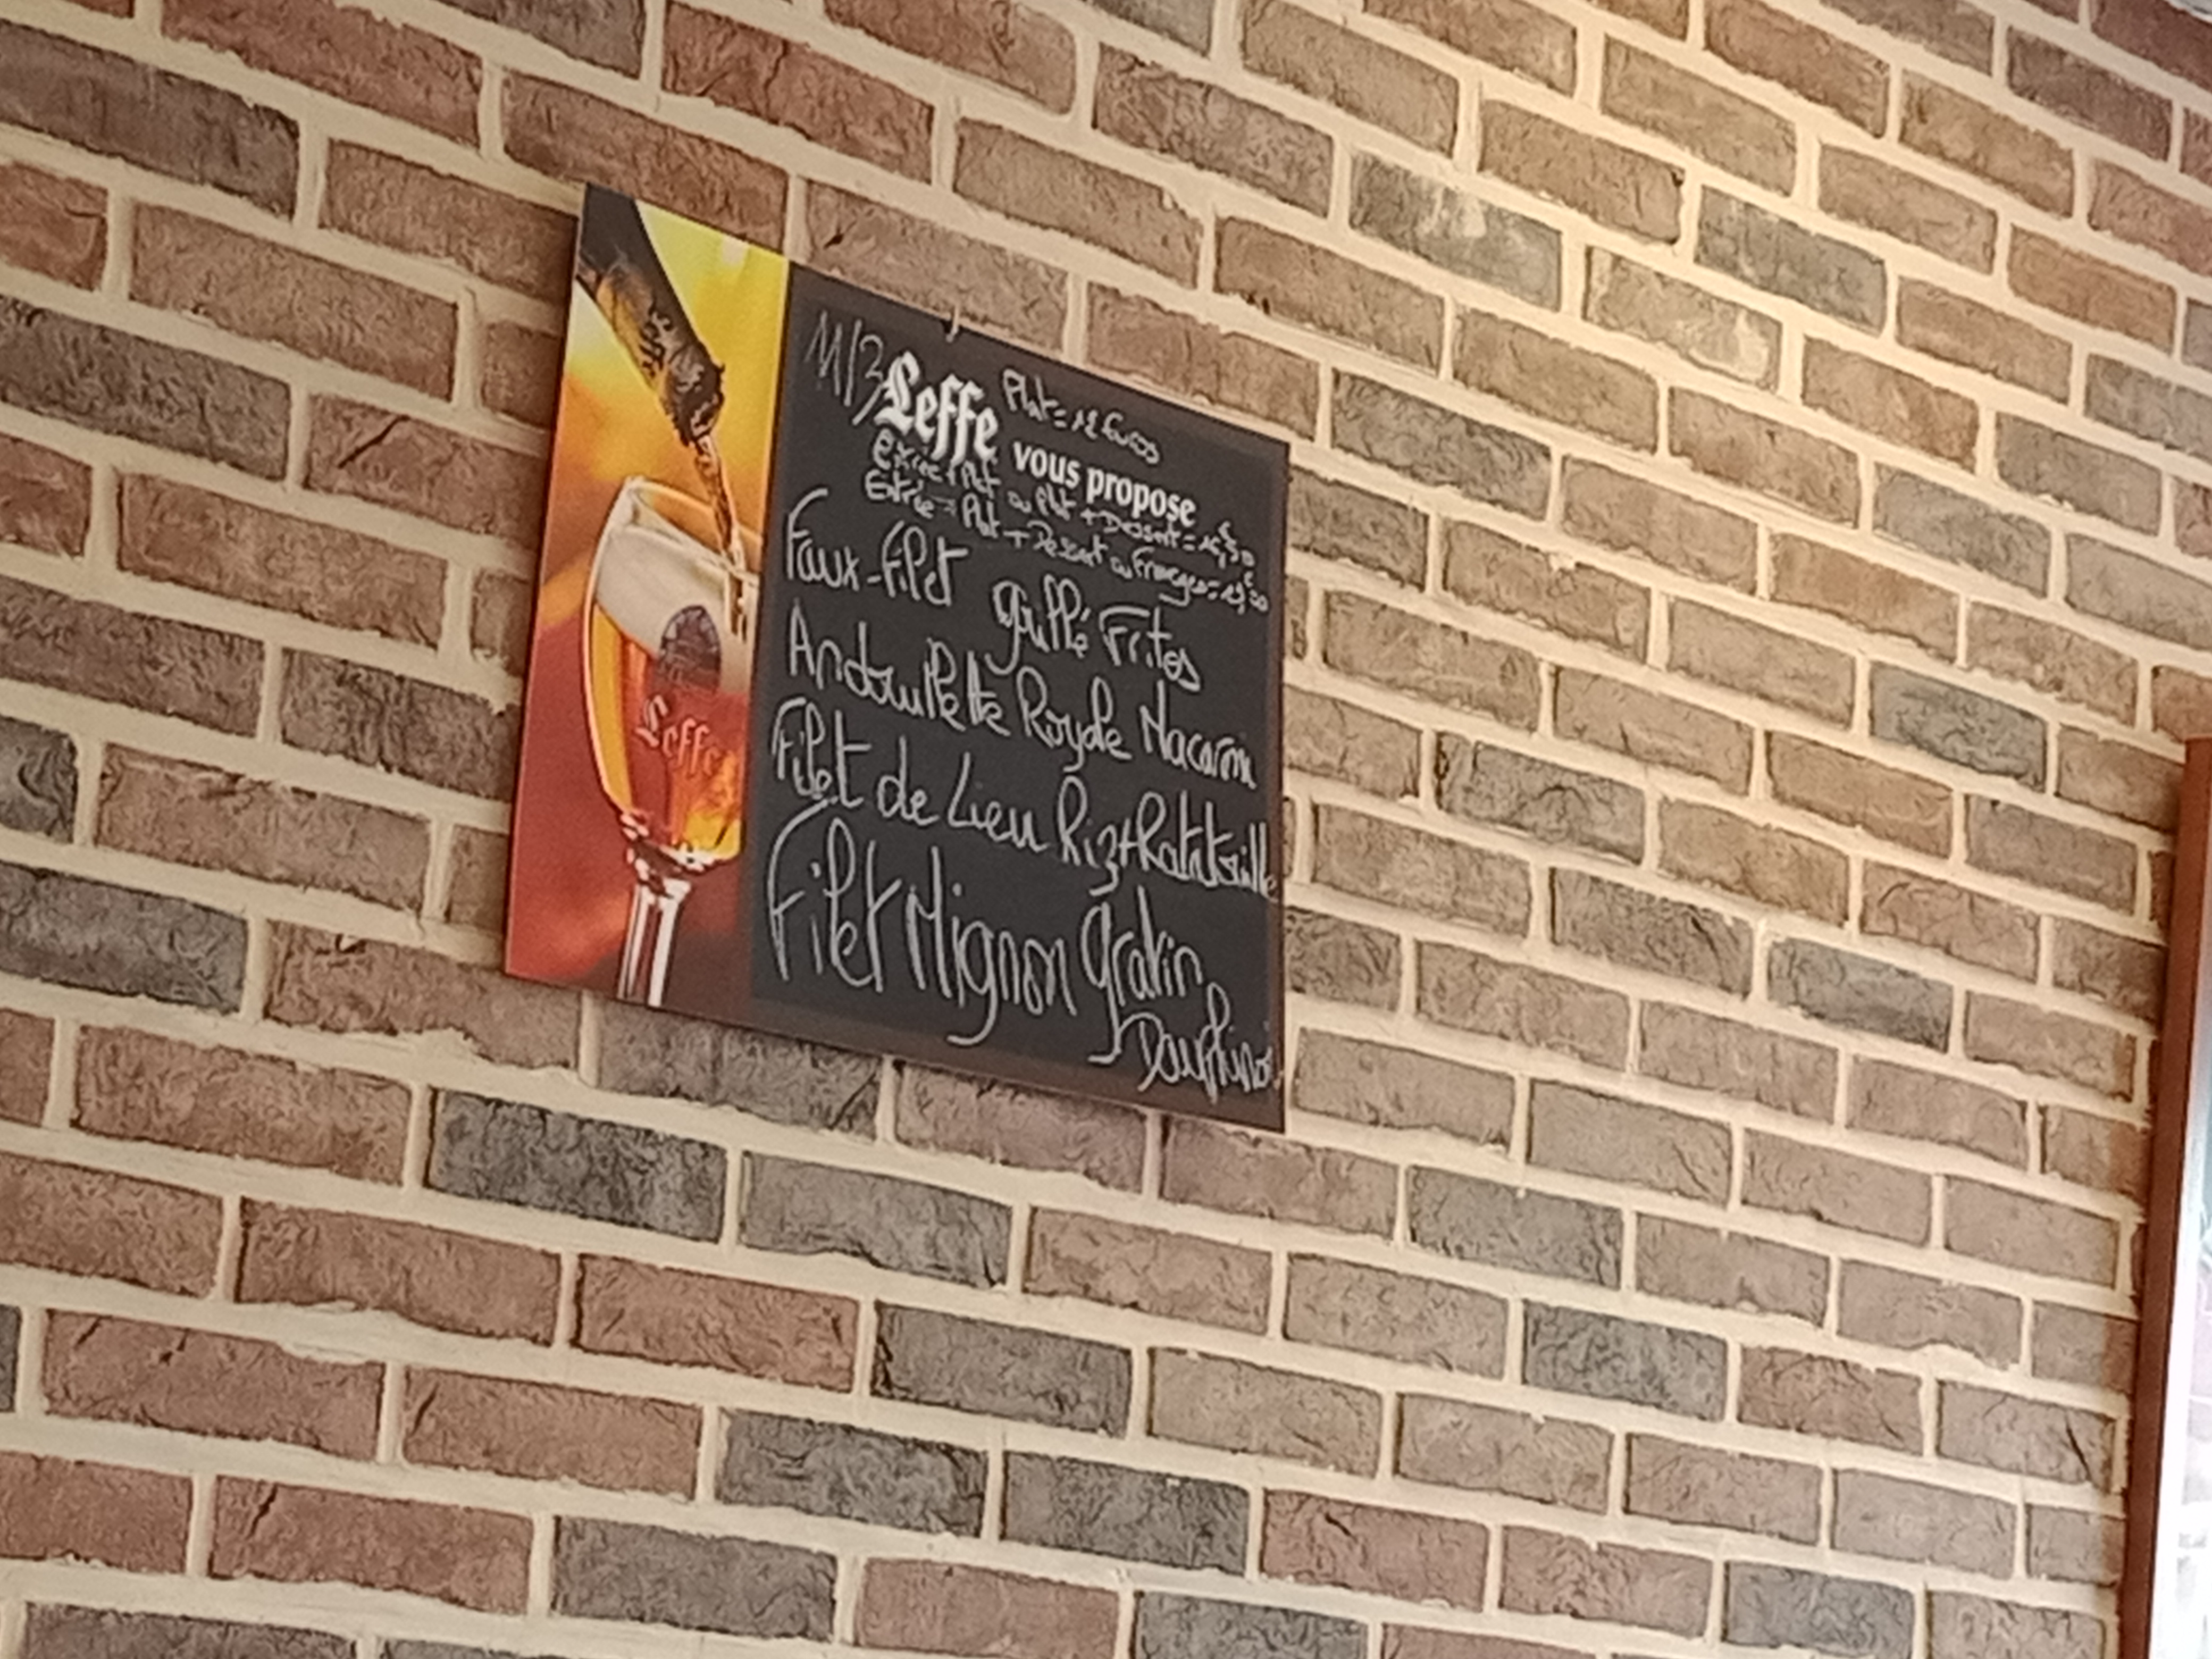 11/3 Plat = 12 Euros
Leffe vous propose
Entrée + Plat ou Plat + Dessert = 16,50 €
Entrée + Plat + Dessert ou Fromage = 19,50 €
Faux-filet grillé Frites
Andouillette Royale Macaroni
Filet de Lieu Riz + Ratatouille
Filet Mignon gratin
Dauphinois
Leffe